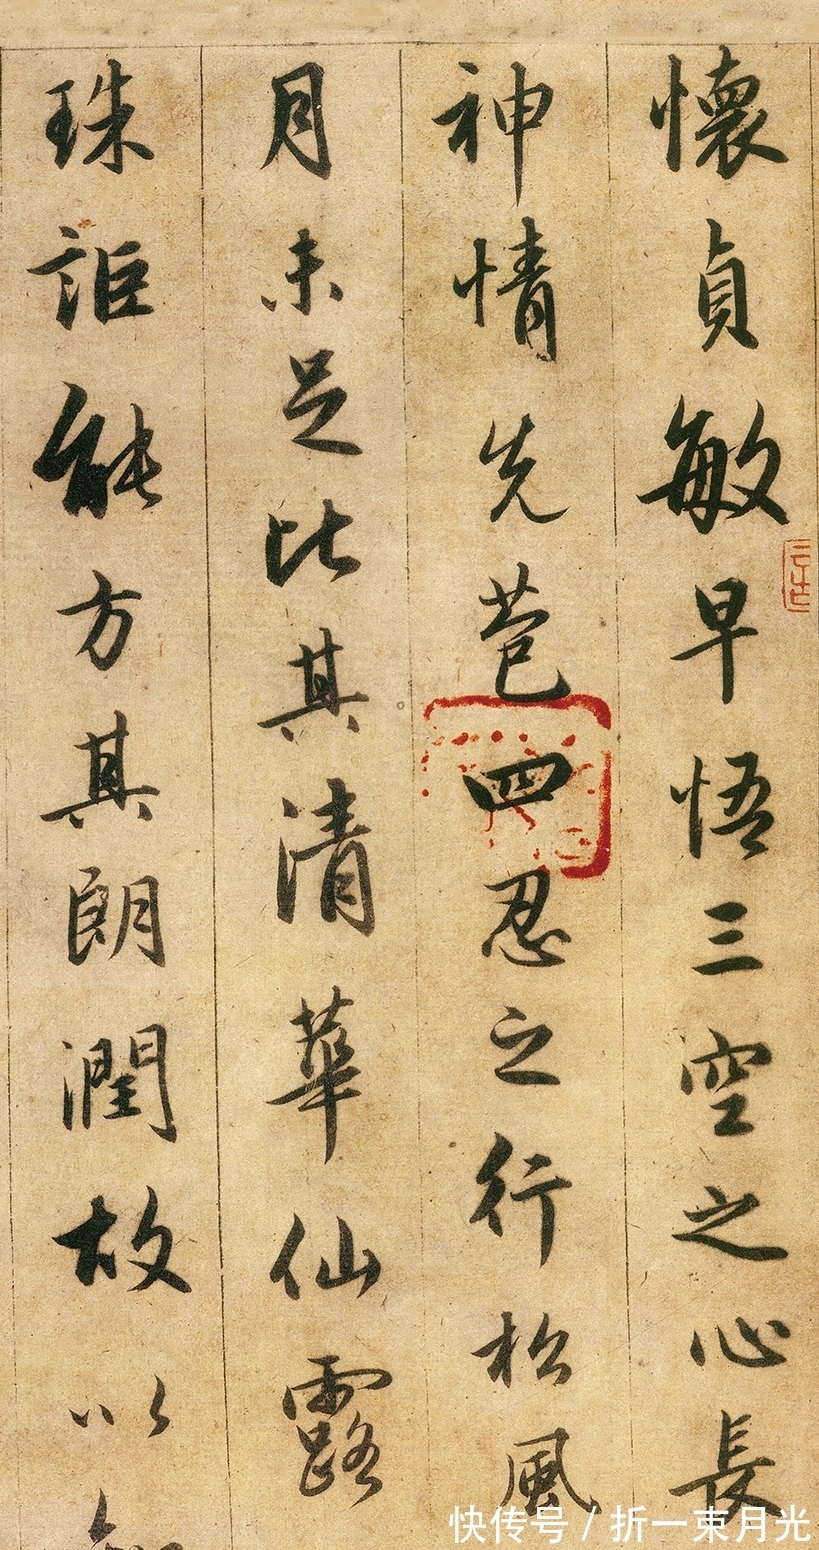 懷貞敏早悟三空之心長
神情先苞四忍之行松風
月未足比其清華仙露
珠詎能方其朗潤故以
快传号 / 折一束月光